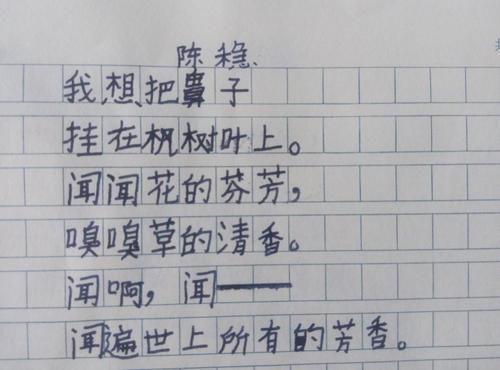 陈稳
我想把鼻子
挂在枫树叶上。
闻闻花的芬芳，
嗅嗅草的清香。
闻啊，闻——
闻遍世上所有的芳香。